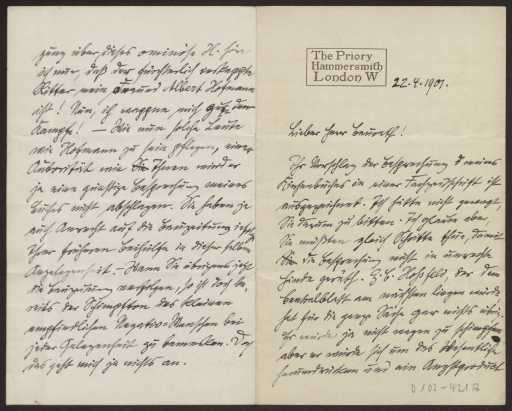 zung über dieses ominöse H. höre
ich nun, daß der fürchterlich verkappte
Ritter mein Freund Albert Hofmann
ist! Nun, ich wappne mich zu dem
Kampfe! — Wie nun solche Leute
wie Hofmann zu sein pflegen, einer
Autorität wie Ihnen wird er
ja eine günstige Besprechung meines
Buches nicht abschlagen. Sie haben ja
auch Anrecht auf die Bauzeitung
Ihrer früheren Beihülfe in dieser selben
Angelegenheit. – Wenn Sie übrigens jetzt
die Bauzeitung verfolgen, so ist doch be-
reits der Schimpfton des kleinen
empfindlichen Negativ-Menschen bei
jeder Gelegenheit zu bemerken. Doch
das geht mich ja nichts an.
The Priory
Hammersmith
London W
22.4.1901.
Lieber Herr
Ihr Vorschlag der Besprechung meines
Kirchenbuches in einer Fachzeitschrift ist
ausgezeichnet. Ich hätte nicht gewagt,
Sie darum zu bitten. Ich glaube aber,
Sie müßten gleich Schritte thun, damit
die Besprechung nicht in unrechte
Hände geräth. Z.B. Hoßfeld, der dem
Centralblatt am nächsten liegen würde
hat für die ganze Sache gar nichts übrig.
Er würde ja nicht wagen zu schimpfen
aber er würde sich um das Wesentliche
herumdrücken und ein Angstprodukt
D 102-421